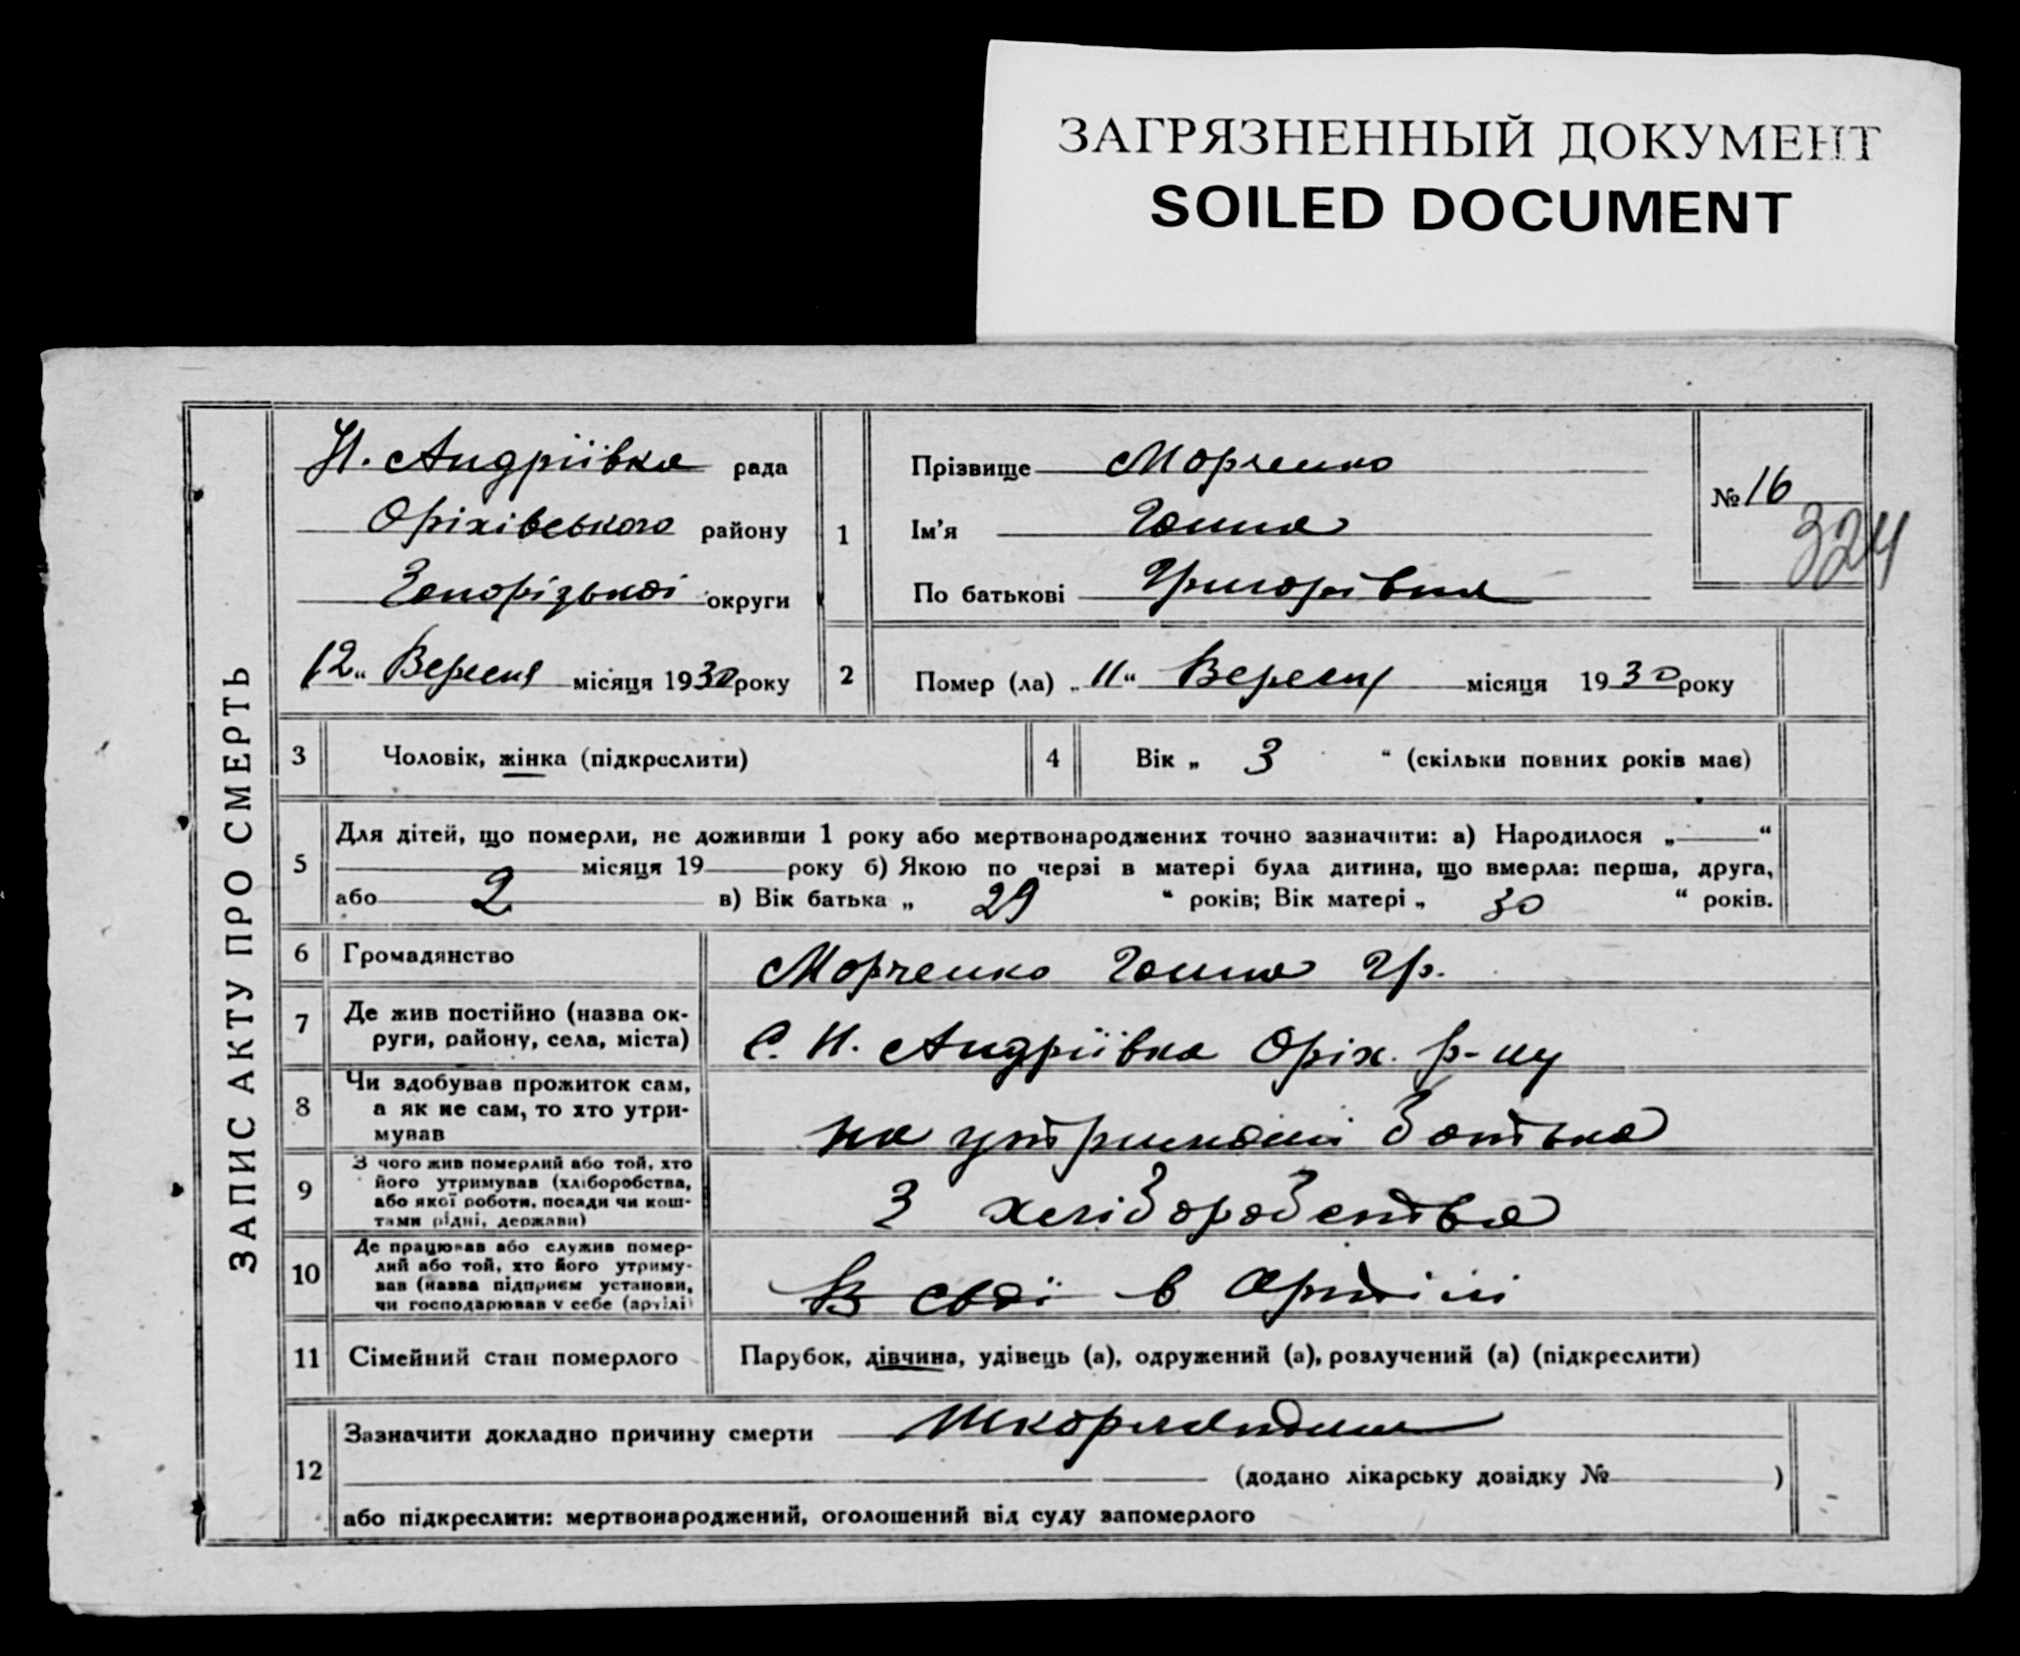 ЗАГРЯЗНЕННЫЙ ДОКУМЕНТ
SOILED DOCUMENT
ЗАПИС АКТУ ПРО СМЕРТЬ
Н. Андріївка рада
Оріхівського району
Запорізької округи
„12“ Вересня місяця 1930 року
1
Прізвище Морченко
Ім’я Ганна
По батькові Григорівна
№ 16
324
2
Помер (ла) „11“ Вересня місяця 1930 року
3 Чоловік, жінка (підкреслити)
4 Вік „ 3 “ (скільки повних років має)
5 Для дітей, що померли, не доживши 1 року або мертвонароджених точно зазначити: а) Народилося „ “
місяця 19 року б) Якою по черзі в матері була дитина, що вмерла: перша, друга,
або 2 в) Вік батька „ 29 “ років; Вік матері „ 30 “ років.
6 Громадянство Морченко Ганна Гр.
7 Де жив постійно (назва ок-
руги, району, села, міста)
С. Н. Андріївка Оріх. р-ну
8 Чи здобував прожиток сам,
а як не сам, то хто утри-
мував
на утриманні батька
9 З чого жив померлий або той, хто
його утримував (хліборобства,
або якої роботи, посади чи кош-
тами рідні, держави)
З хліборобства
10 Де працював або служив помер-
лий або той, хто його утриму-
вав (назва підприєм установи,
чи господарював у себе (артілі)
В свої в Артілі
11 Сімейний стан померлого Парубок, дівчина, удівець (а), одружений (а), розлучений (а) (підкреслити)
12 Зазначити докладно причину смерти
(додано лікарську довідку № )
або підкреслити: мертвонароджений, оголошений від суду запомерлого